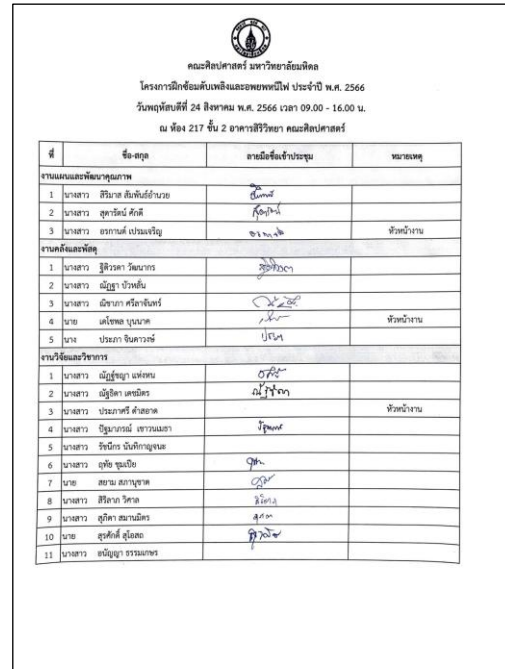 คณะศิลปศาสตร์ มหาวิทยาลัยมหิดล
โครงการฝึกซ้อมดับเพลิงและอพยพหนีไฟ ประจำปี พ.ศ. 2566
วันพฤหัสบดีที่ 24 สิงหาคม พ.ศ. 2566 เวลา 09.00 - 16.00 น.
ณ ห้อง 217 ชั้น 2 อาคารสิริวิทยา คณะศิลปศาสตร์
ที่ ชื่อ-สกุล ลายมือชื่อเข้าประชุม หมายเหตุ
งานแผนและพัฒนาคุณภาพ
1 นางสาว สิริมาส สัมพันธ์อำนวย
2 นางสาว สุดารัตน์ ศักดี
3 นางสาว อรกานต์ เปรมเจริญ หัวหน้างาน
งานคลังและพัสดุ
1 นางสาว ฐิติวรดา วัฒนากร
2 นางสาว ณัฏฐา บัวหลั่น
3 นางสาว ณิชาภา ศรีลาจันทร์
4 นาย เตโชพล บุนนาค หัวหน้างาน
5 นาง ประภา จินดาวงษ์
งานวิจัยและวิชาการ
1 นางสาว ณัฏฐ์ชญา แห่งหน
2 นางสาว ณัฐธิดา เดชมิตร
3 นางสาว ประภาศรี ดำสอาด หัวหน้างาน
4 นางสาว ปัฐมาภรณ์ เชาวนเมธา
5 นางสาว รัชนีกร นันทิกาญจนะ
6 นางสาว ฤทัย ชุมเปีย
7 นาย สยาม สภานุชาต
8 นางสาว สิริลาภ วิศาล
9 นางสาว สุภิดา สมานมิตร
10 นาย สุรศักดิ์ สุโอสถ
11 นางสาว อนัญญา ธรรมเกษร